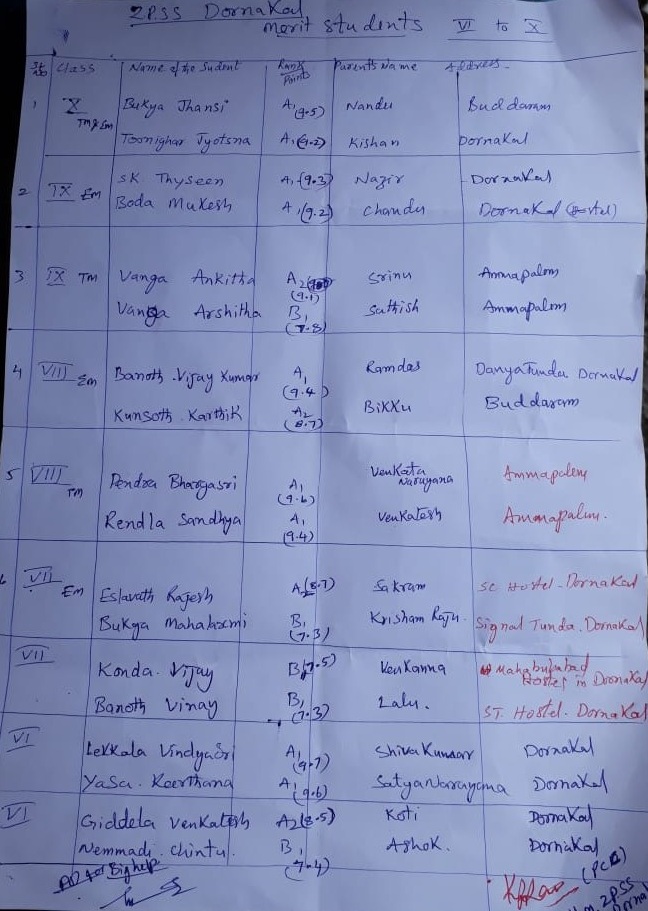 ZPSS Dornakal
merit students VI to X
Sl No Class Name of the Sudent Rank/Points Parents Name Address
1 X Tm & Em Bukya Jhansi A1 (9.5) Nandu Buddaram
Toonighar Jyotsna A1 (9.2) Kishan Dornakal
2 IX Em SK Thyseen A1 (9.3) Nazir Dornakal
Boda Mukesh A1 (9.2) Chandu Dornakal (Hostel)
3 IX Tm Vanga Ankitha A2 (9.1) Srinu Ammapalem
Vanga Arshitha B1 (7.8) Sathish Ammapalem
4 VIII Em Banoth Vijay Kumar A1 (9.4) Ramdas Danya Tunda Dornakal
Kunsoth Karthik A2 (8.7) Bikku Buddaram
5 VIII Tm Pendra Bhargasri A1 (9.6) Venkata Narayana Ammapalem
Rendla Sandhya A1 (9.4) Venkatesh Ammapalem.
6 VII Em Eslavath Rajesh A2 (8.7) Sakram SC Hostel-Dornakal
Bukya Mahalaxmi B1 (7.3) Krisham Raju Signal Tunda. Dornakal
VII Konda. Vijay B1 (7.5) Venkanna Mahabubabad Hostel in Dornakal
Banoth Vinay B1 (7.3) Lalu. ST. Hostel. Dornakal
VI Lekkala Vindyasri A1 (9.7) Shiva Kumar Dornakal
Yasa. Keerthana A1 (9.6) Satya Narayana Dornakal
VI Giddela Venkatesh A2 (8.5) Koti Dornakal
Nemmadi. Chintu. B1 (7.4) Ashok. Dornakal
for Big help
ZPSS